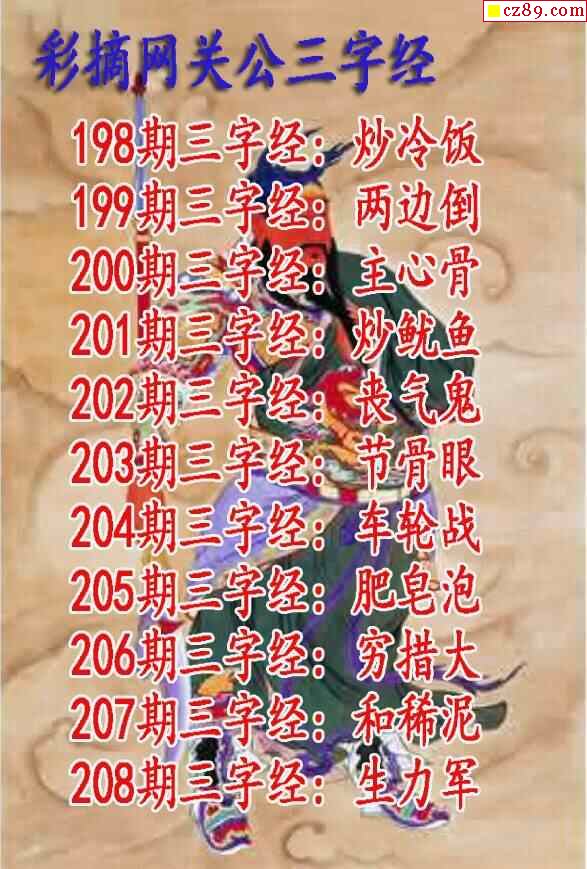 cz89.com
彩摘网关公三字经
198期三字经：炒冷饭
199期三字经：两边倒
200期三字经：主心骨
201期三字经：炒鱿鱼
202期三字经：丧气鬼
203期三字经：节骨眼
204期三字经：车轮战
205期三字经：肥皂泡
206期三字经：穷措大
207期三字经：和稀泥
208期三字经：生力军